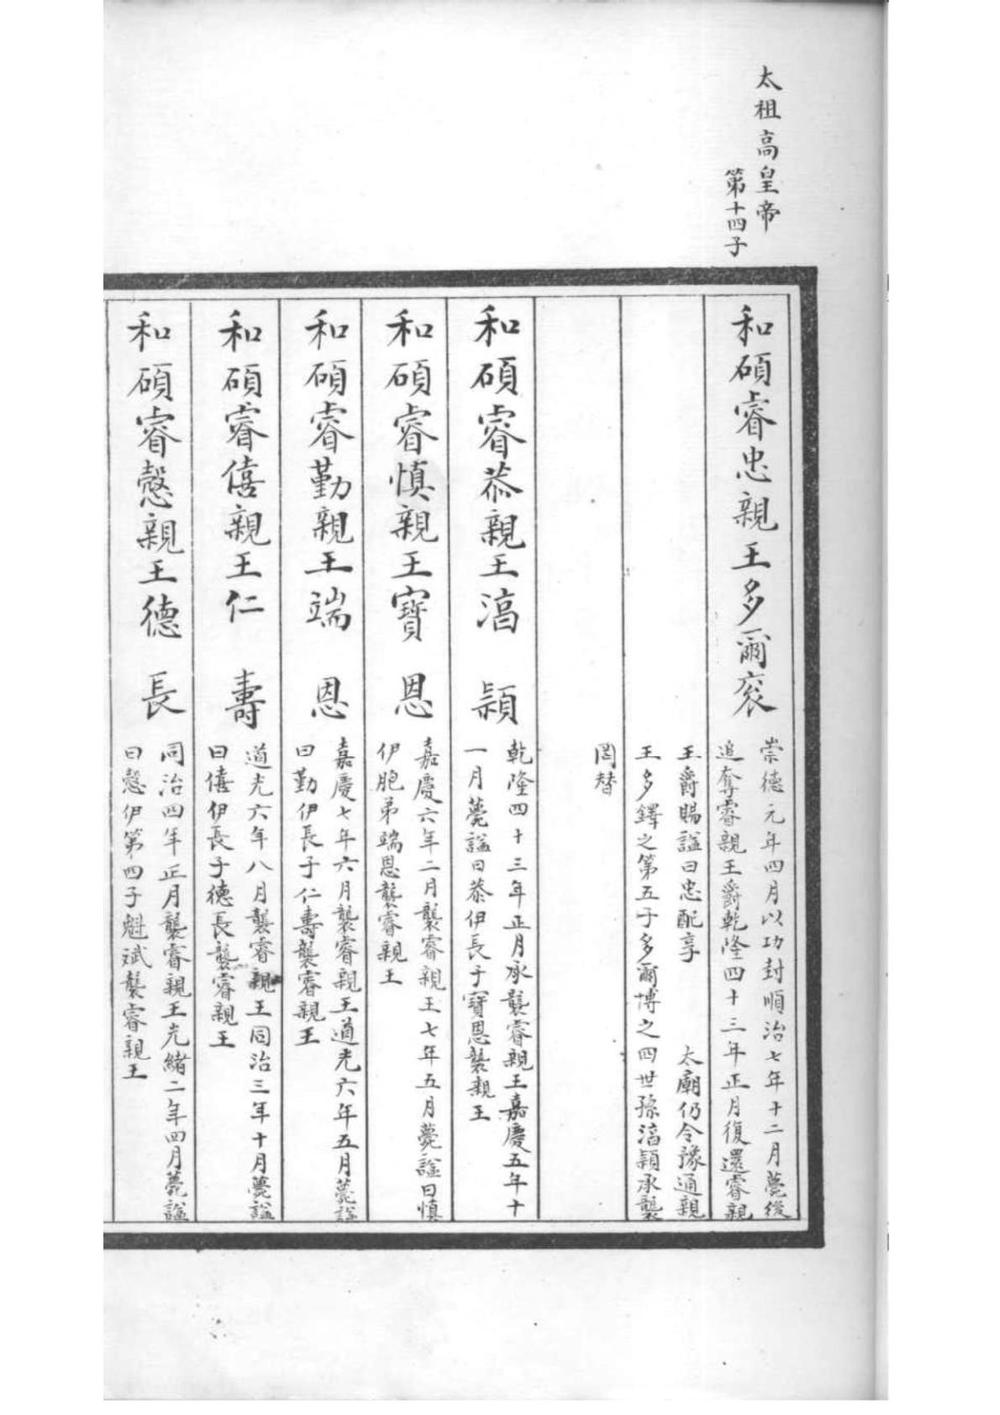 太祖高皇帝
第十四子
和碩睿忠親王多爾袞
崇德元年四月以功封順治七年十二月薨後
追奪睿親王爵乾隆四十三年正月復還睿親
王爵賜謚曰忠配享　太廟仍令豫通親
王多鐸之第五子多爾博之四世孫淯穎承襲
罔替
和碩睿恭親王淯穎
乾隆四十三年正月承襲睿親王嘉慶五年十
一月薨謚曰恭伊長子寶恩襲親王
和碩睿慎親王寶恩
嘉慶六年二月襲睿親王七年五月薨謚曰慎
伊胞弟端恩襲睿親王
和碩睿勤親王端恩
嘉慶七年六月襲睿親王道光六年五月薨謚
曰勤伊長子仁壽襲睿親王
和碩睿僖親王仁壽
道光六年八月襲睿親王同治三年十月薨謚
曰僖伊長子德長襲睿親王
和碩睿慤親王德長
同治四年正月襲睿親王光緒二年四月薨謚
曰慤伊第四子魁斌襲睿親王